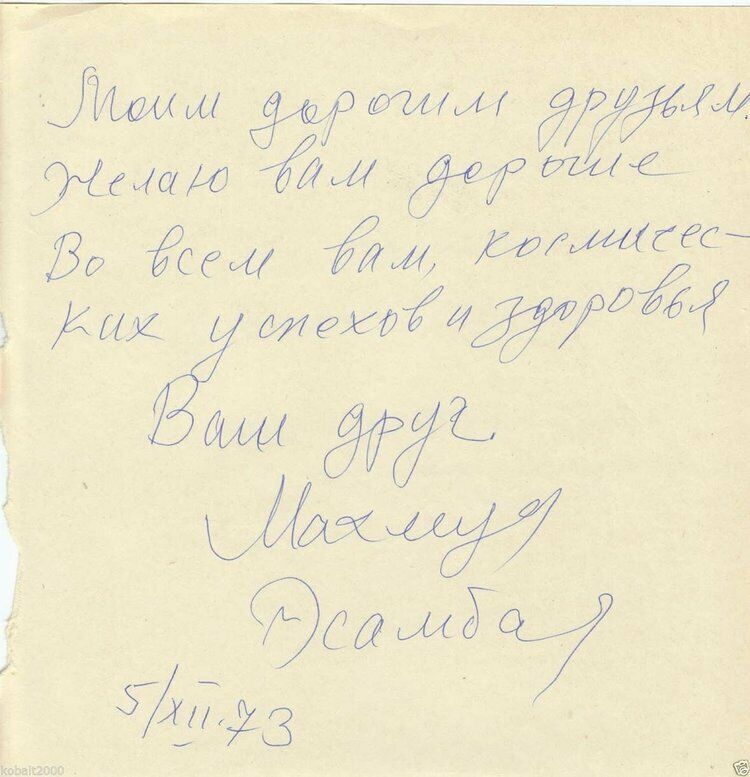 Моим дорогим друзьям.
Желаю вам дорогие
Во всем вам, космичес-
ких успехов и здоровья
Ваш друг.
Махмуд
Эсамба
5/XII.73
kobalt2000